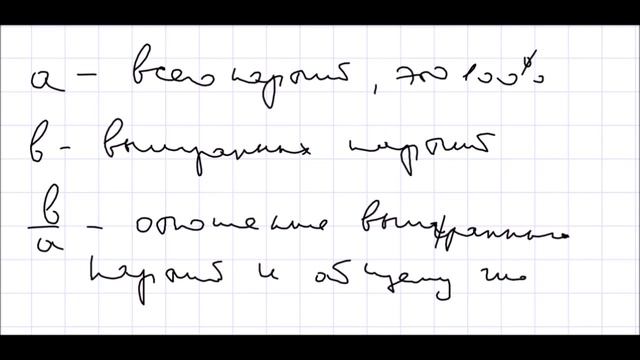 a – всего партий, это 100%
b – выигранных партий
b/a – отношение выигранных
партий к общему чи